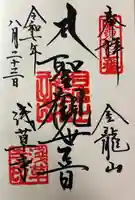 奉拝
金龍山
聖観世音
浅草寺
令和七年
八月二十三日